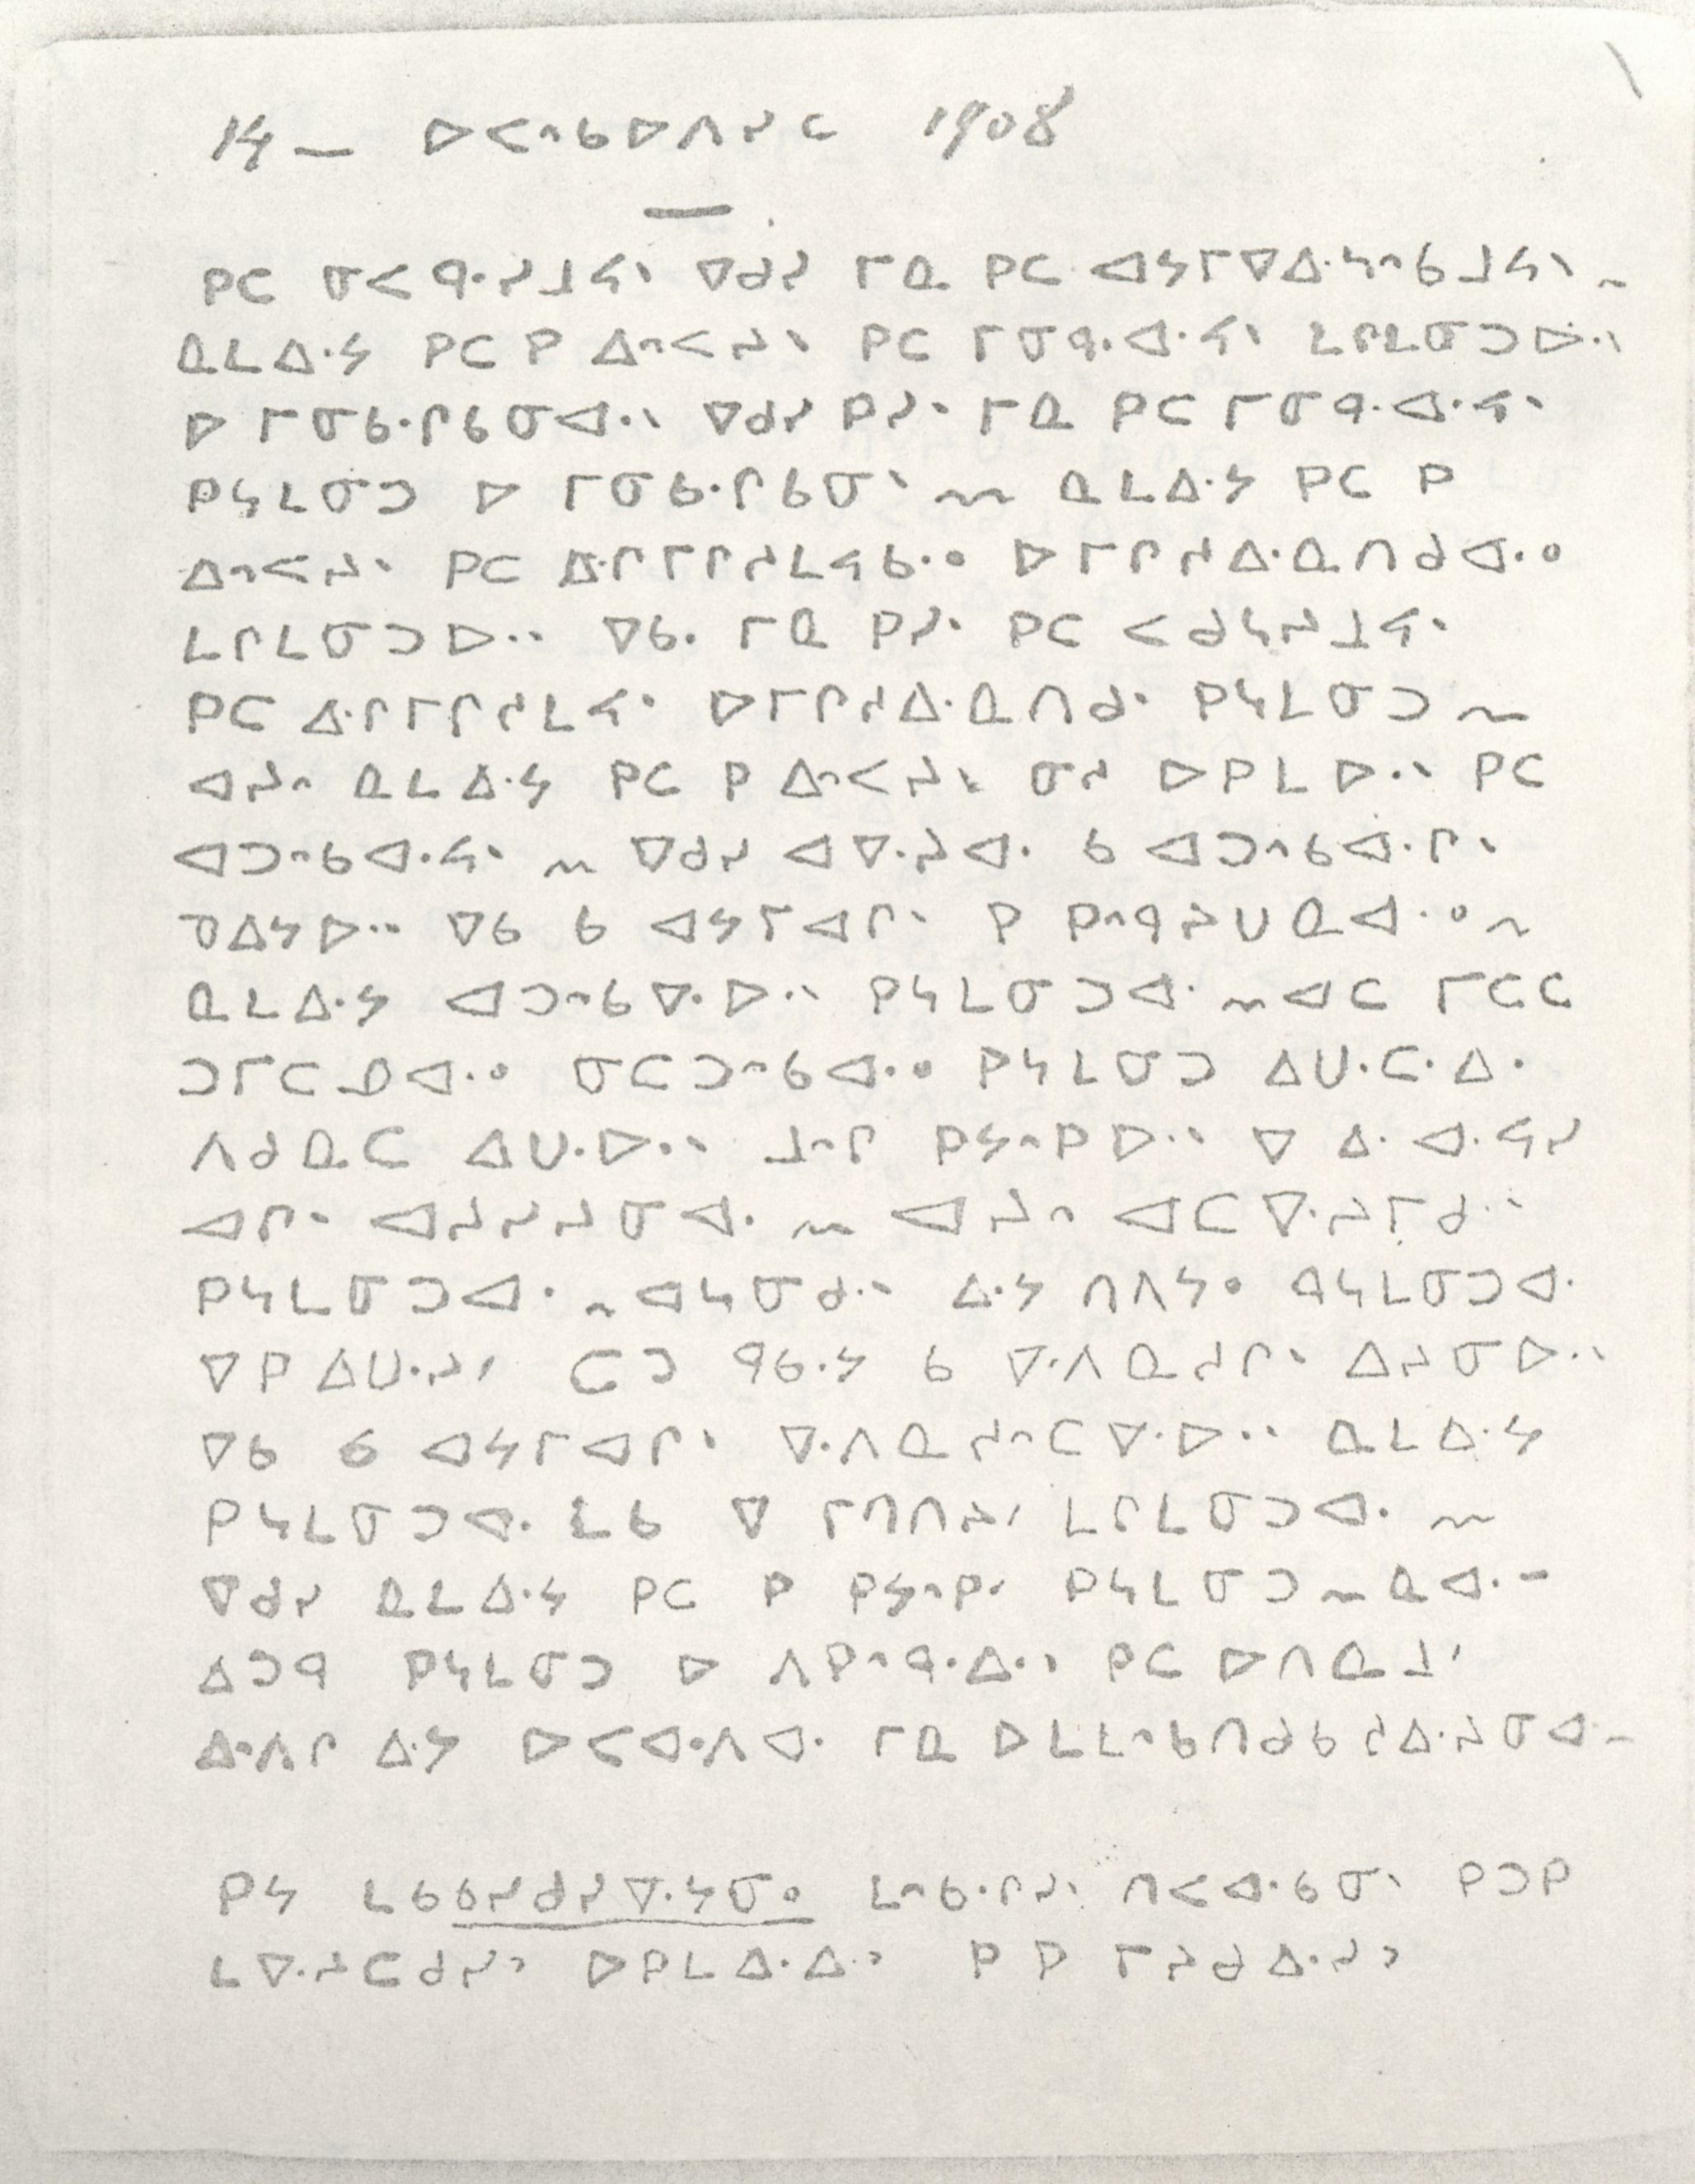 14 — ᐅᐸᐢᑲᐅᐱᓯᑦ 1908
ᑭᑕ ᓂᐸᑫᐧᓯᒧᔦᐠ ᐁᑯᓯ ᒥᓇ ᑭᑕ ᐊᔭᒥᐁᐃᐧᓴᐢᑲᒧᔦᐠ ~
ᓇᒪᐃᐧᔭ ᑭᑕ ᑭ ᐃᐢᐸᔨᐠ ᑭᑕ ᒥᓂᑫᐧᐊᐧᔦᐠ ᒪᒋᒪᓂᑐᐅᐧᐠ
ᐅ ᒥᓂᑲᐧᒋᑲᓂᐊᐧᐠ ᐁᑯᓯ ᑭᓯᐠ ᒥᓇ ᑭᑕ ᒥᓂᑫᐧᐊᐧᔦᐠ
ᑭᓴᒪᓂᑐ ᐅ ᒥᓂᑲᐧᒋᑲᓂᐠ ~ ᓇᒪᐃᐧᔭ ᑭᑕ ᑭ
ᐃᐢᐸᔨᐠ ᑭᑕ ᐃᐧᒋᒥᒋᓱᒪᔦᑲᐧᐤ ᐅᒥᒋᓱᐃᐧᓇᑎᑯᐊᐧᐤ
ᒪᒋᒪᓂᑐᐅᐧᐠ ᐁᑲᐧ ᒥᓇ ᑭᓯᐠ ᑭᑕ ᐸᑯᓴᔨᒧᔦᐠ
ᑭᑕ ᐃᐧᒋᒥᒋᓱᒪᔦᐠ ᐅᒥᒋᓱᐃᐧᓇᑎᑯᐠ ᑭᓴᒪᓂᑐ ~
ᐊᔨᐢ ᓇᒪᐃᐧᔭ ᑭᑕ ᑭ ᐃᐢᐸᔨᐠ ᓂᓱ ᐅᑭᒪᐅᐧᐠ ᑭᑕ
ᐊᑐᐢᑲᐊᐧᔦᐠ ~ ᐁᑯᓯ ᐊᐍᔨᐊᐧ ᑲ ᐊᑐᐢᑲᐊᐧᒋᐠ
ᑫᐃᔭᐅᐧᐠ ᐁᑲ ᑲ ᐊᔭᒥᐊᒋᐠ ᑭ ᑭᐢᑫᔨᑌᓇᐊᐧᐤ ~
ᓇᒪᐃᐧᔭ ᐊᑐᐢᑲᐍᐅᐧᐠ ᑭᓴᒪᓂᑐᐊᐧ ~ ᐊᑕ ᒥᑕᑕ
ᑐᒥᑕᓄᐊᐧᐤ ᓂᑕᑐᐢᑲᐊᐧᐤ ᑭᓴᒪᓂᑐ ᐃᑌᐧᑕᐧᐃᐧ
ᐱᑯᓇᑕ ᐃᑌᐧᐅᐧᐠ ᒧᐢᒋ ᑭᔭᐢᑭᐅᐧᐠ ᐁ ᐃᐧ ᐊᐧᔦᓯ
ᐊᒋᐠ ᐊᔨᓯᔨᓂᐊᐧ ~ ᐊᔨᐢ ᐊᑕᐍᔨᒥᑯᐧᐠ
ᑭᓴᒪᓂᑐᐊᐧ ~ ᐊᓴᓂᑯᐧᐠ ᐃᐧᔭ ᑎᐱᔭᐤ ᑫᓴᒪᓂᑐᐊᐧ
ᐁᑭ ᐃᑌᐧᔨᐟ ᑕᑐ ᑫᑲᐧᔭ ᑲ ᐍᐱᓇᓱᒋᐠ ᐃᔨᓂᐅᐧᐠ
ᐁᑲ ᑲ ᐊᔭᒥᐊᒋᐠ ᐍᐱᓇᓱᐢᑕᐍᐅᐧᐠ ᓇᒪᐃᐧᔭ
ᑭᓴᒪᓂᑐᐊᐧ ᒪᑲ ᐁ ᒥᑎᑎᔨᐟ ᒪᒋᒪᓂᑐᐊᐧ ~
ᐁᑯᓯ ᓇᒪᐃᐧᔭ ᑭᑕ ᑭ ᑭᔭᐢᑭᐟ ᑭᓴᒪᓂᑐ ~ ᓇᐊᐧ -
ᐃᑐᑫ ᑭᓴᒪᓂᑐ ᐅ ᐱᑭᐢᑫᐧᐃᐧᐠ ᑭᑕ ᐅᑎᓇᒧᐟ
ᐃᐧᐱᒋ ᐃᐧᔭ ᐅᐸᐊᐧᐱᐊᐧ ᒥᓇ ᐅᒪᒪᐢᑲᑎᑯᑲᓱᐃᐧᔨᓂᐊᐧ ~
ᑭᔭ ᒪᑲᑲᓯᑯᓯᐍᔭᓂᐤ ᒪᐢᑲᐧᒋᓯᐠ ᑎᐸᐊᐧᑲᓂᐠ ᑭᑐᑭ
ᒪᐍᔨᑕᑯᓯᐣ ᐅᑭᒪᐃᐧᐃᐧᐣ ᑭ ᑭ ᒥᔨᑯᐃᐧᓯᐣ